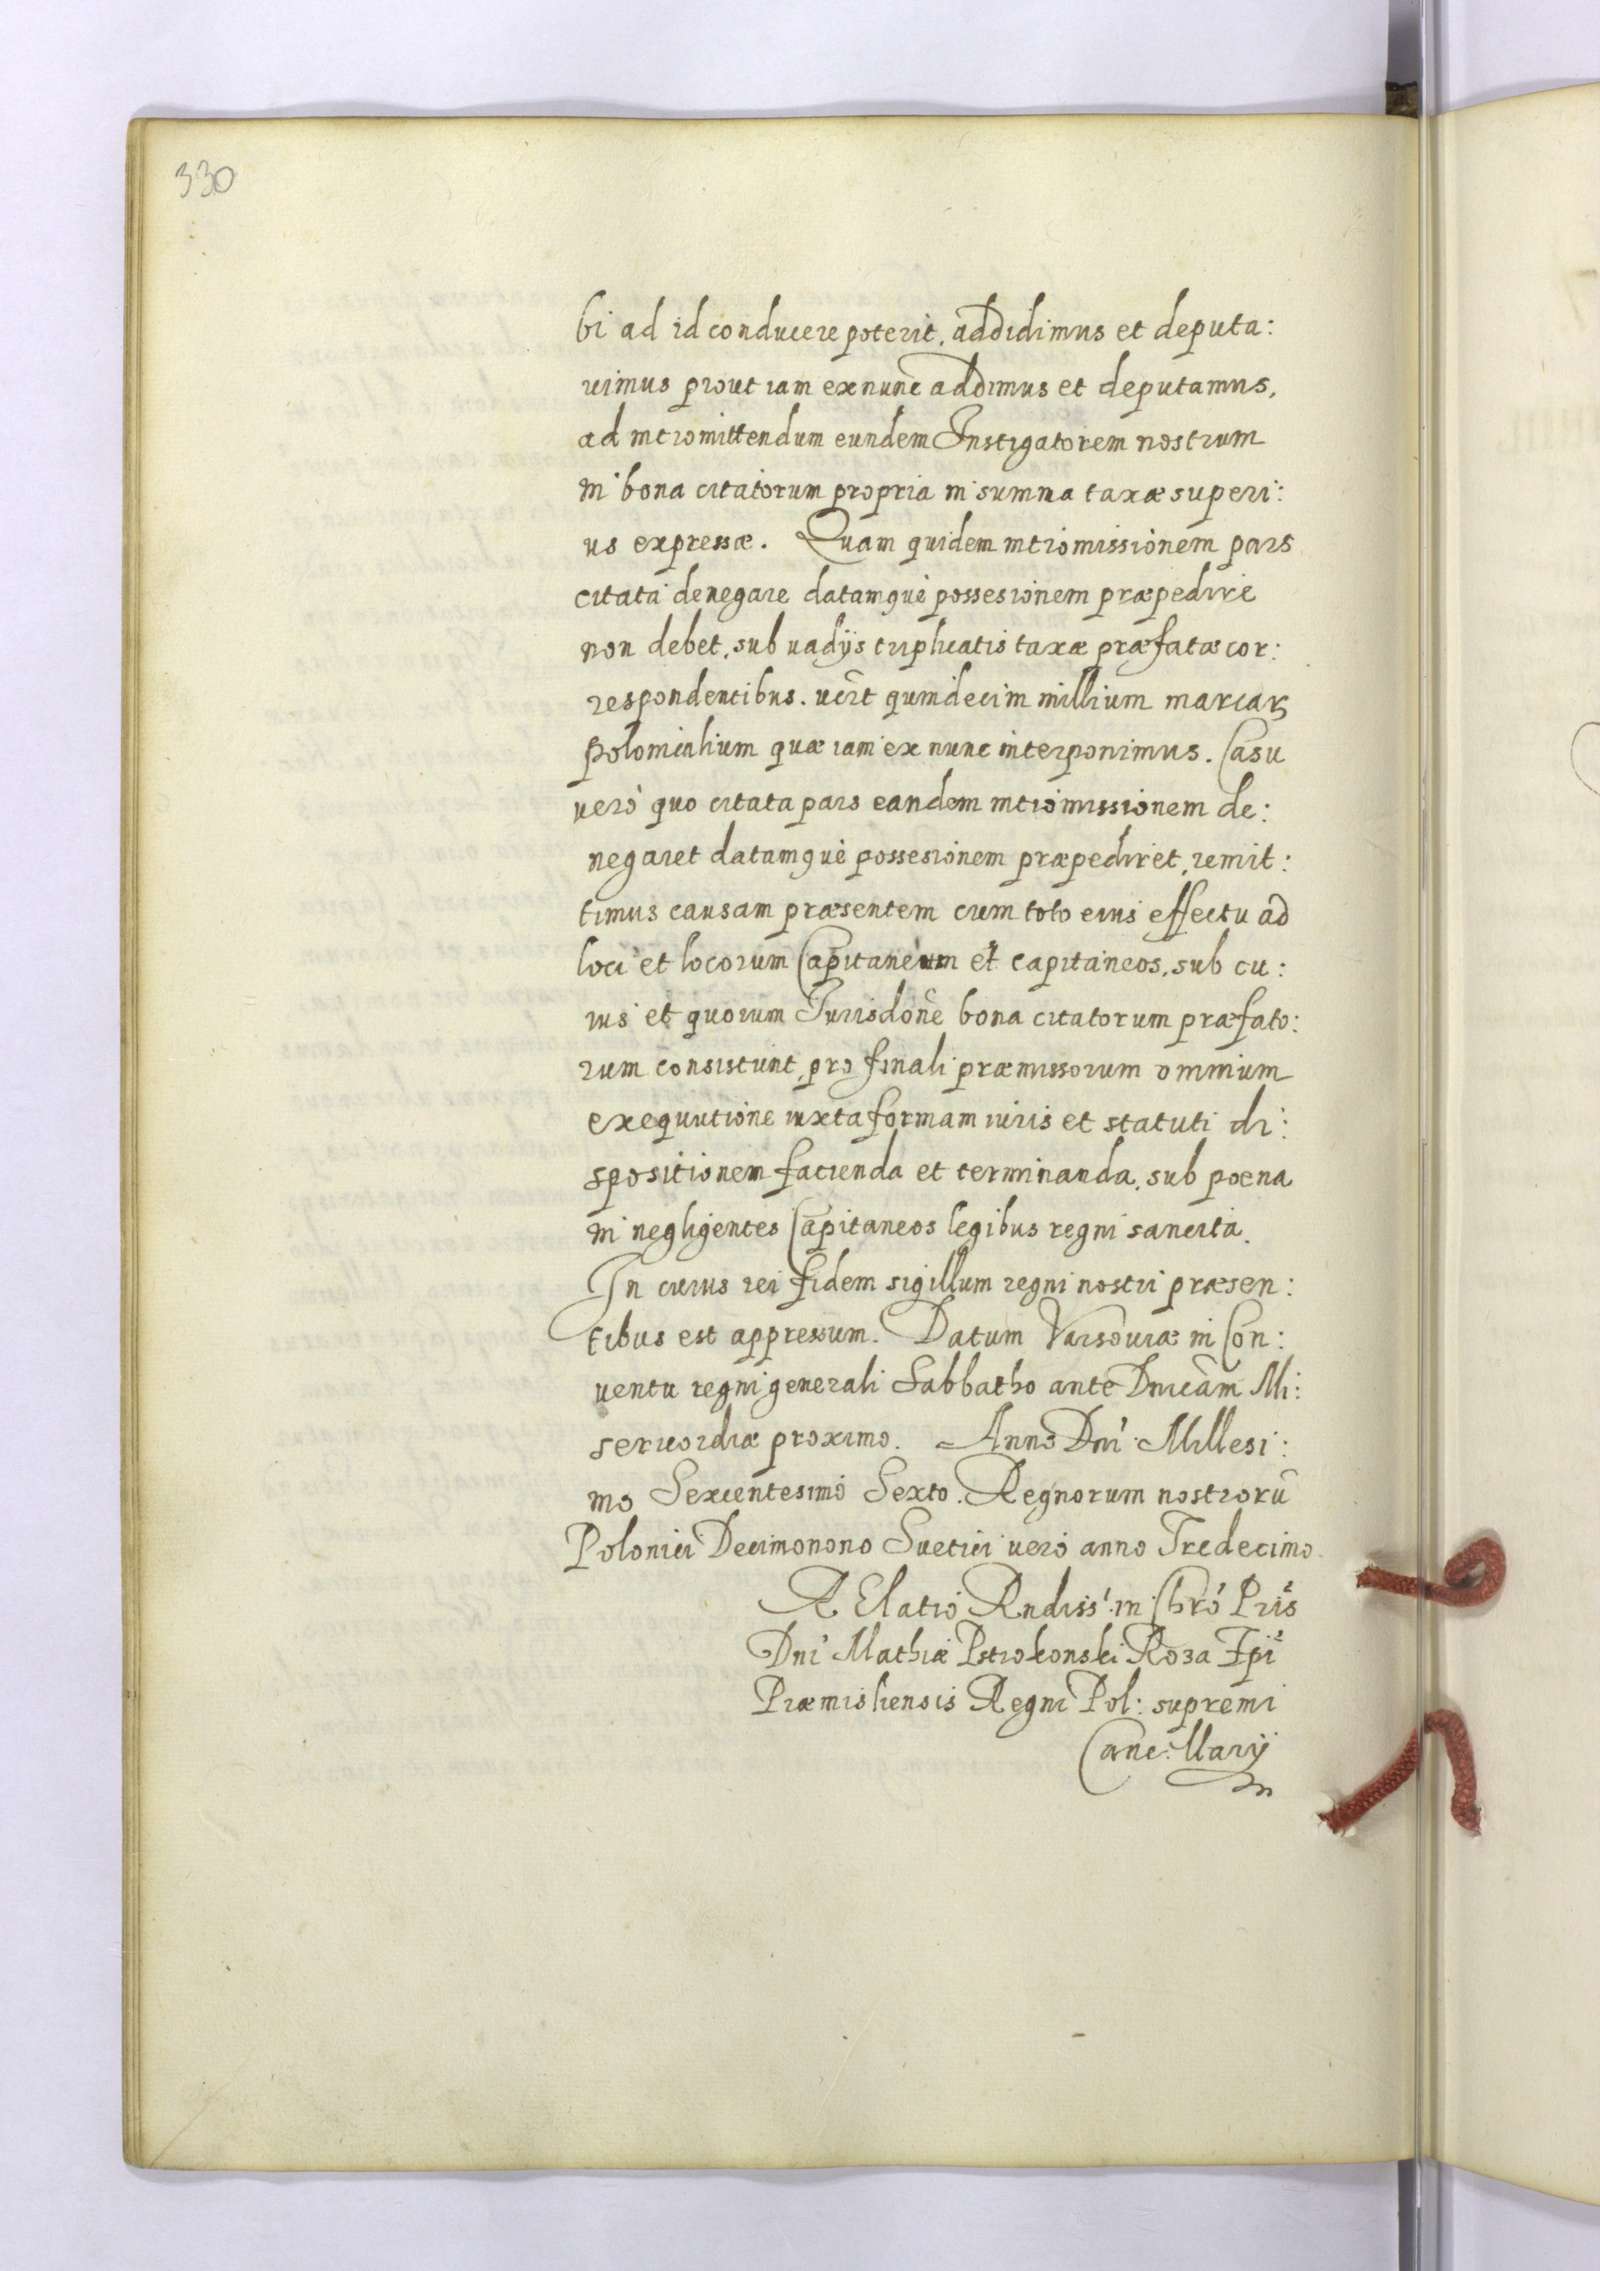 330
bi ad id conducere poterit, addidimus et deputa:
vimus prout iam ex nunc addimus et deputamus,
ad intromittendum eundem Instigatorem nostrum
in bona citatorum propria in summa taxæ superi:
us expressæ. Quam quidem intromissionem pars
citata denegare datamquè possesionem præpedire
non debet, sub vadijs triplicatis taxæ præfatæ cor:
respondentibus. vĉrt quindecim millium marcarꝝ
polonicalium quæ iam ex nunc interponimus. Casu
verò quo citata pars eandem intromissionem de:
negaret datamquè possesionem præpediret, remit:
timus causam præsentem cum toto eius effectu ad
loci et locorum Capitaneum et capitaneos, sub cu:
ius et quorum Jurisdône bona citatorum præfato:
rum consistunt, pro finali præmissorum omnium
exequutione iuxta formam iuris et statuti di:
spositionem facienda et terminanda, sub poena
in negligentes Capitaneos legibus regni sancita.
In cuius rei fidem sigillum regni nostri præsen:
tibus est appressum. Datum Varsoviæ in Con:
ventu regni generali Sabbatho ante Dnicâm Mi:
sericordiæ proximo. Anno Dni Millesi:
mo Sexcentesimo Sexto. Regnorum nostrorū
Polonici Decimonono Suetici vero anno Tredecimo.
RElatio Rndiss: in Chrō Pris
Dni Mathiæ Pstrokonski Roza Epi
Præmisliensis Regni Pol: supremi
Cancellarij